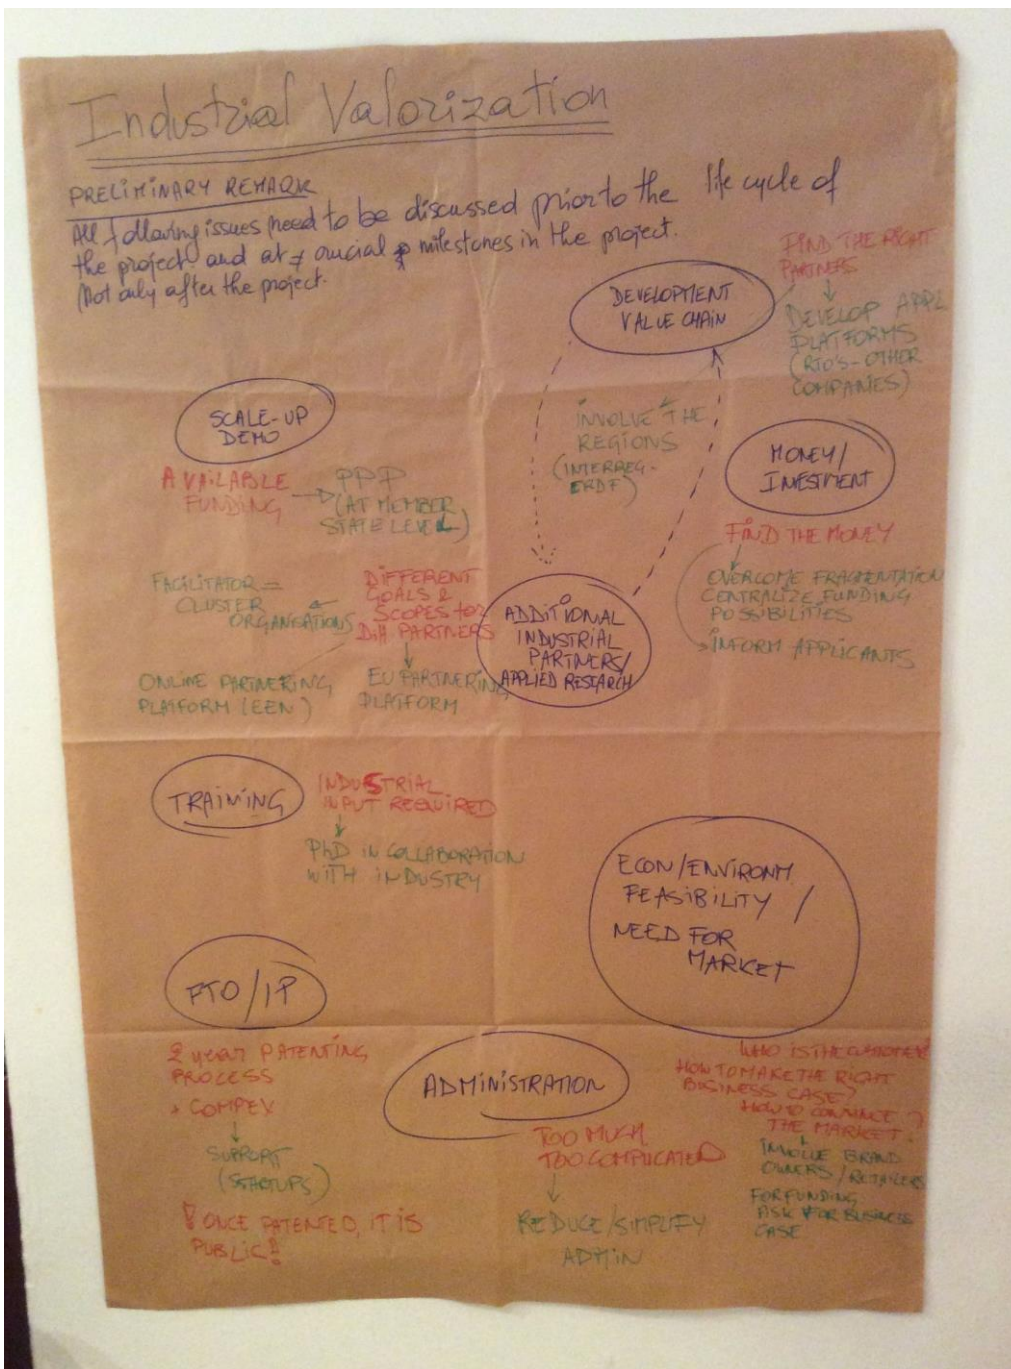 Industrial Valorization
PRELIMINARY REMARK
All following issues need to be discussed prior to the life cycle of
the project and at ≠ crucial milestones in the project.
Not only after the project.
DEVELOPMENT
VALUE CHAIN
FIND THE RIGHT
PARTNERS
DEVELOP APPL
PLATFORMS
(RTO'S-OTHER
COMPANIES)
SCALE-UP
DEMO
AVAILABLE
FUNDING
PPP
(AT MEMBER
STATE LEVEL)
INVOLVE THE
REGIONS
(INTERREG-
ERDF)
MONEY/
INESTMENT
FIND THE MONEY
OVERCOME FRAGMENTATION
CENTRALIZE FUNDING
POSSIBILITIES
INFORM APPLICANTS
FACILITATOR =
CLUSTER
ORGANISATIONS
DIFFERENT
GOALS &
SCOPES for
Diff. PARTNERS
ONLINE PARTNERING
PLATFORM (EEN)
EU PARTNERING
PLATFORM
ADDITIONAL
INDUSTRIAL
PARTNERS/
APPLIED RESEARCH
TRAINING
INDUSTRIAL
INPUT REQUIRED
PhD IN COLLABORATION
WITH INDUSTRY
ECON/ENVIRONM
FEASIBILITY /
NEED FOR
MARKET
FTO/IP
2 year PATENTING
PROCESS
+ COMPEX
SUPPORT
(STARTUPS)
! ONCE PATENTED, IT IS
PUBLIC!
ADMINISTRATION
TOO MUCH
TOO COMPLICATED
REDUCE/SIMPLIFY
ADMIN
WHO IS THE CUSTOMER?
HOW TO MAKE THE RIGHT
BUSINESS CASE?
HOW TO CONVINCE
THE MARKET?
INVOLVE BRAND
OWNERS/RETAILERS
FOR FUNDING
ASK FOR BUSINESS
CASE